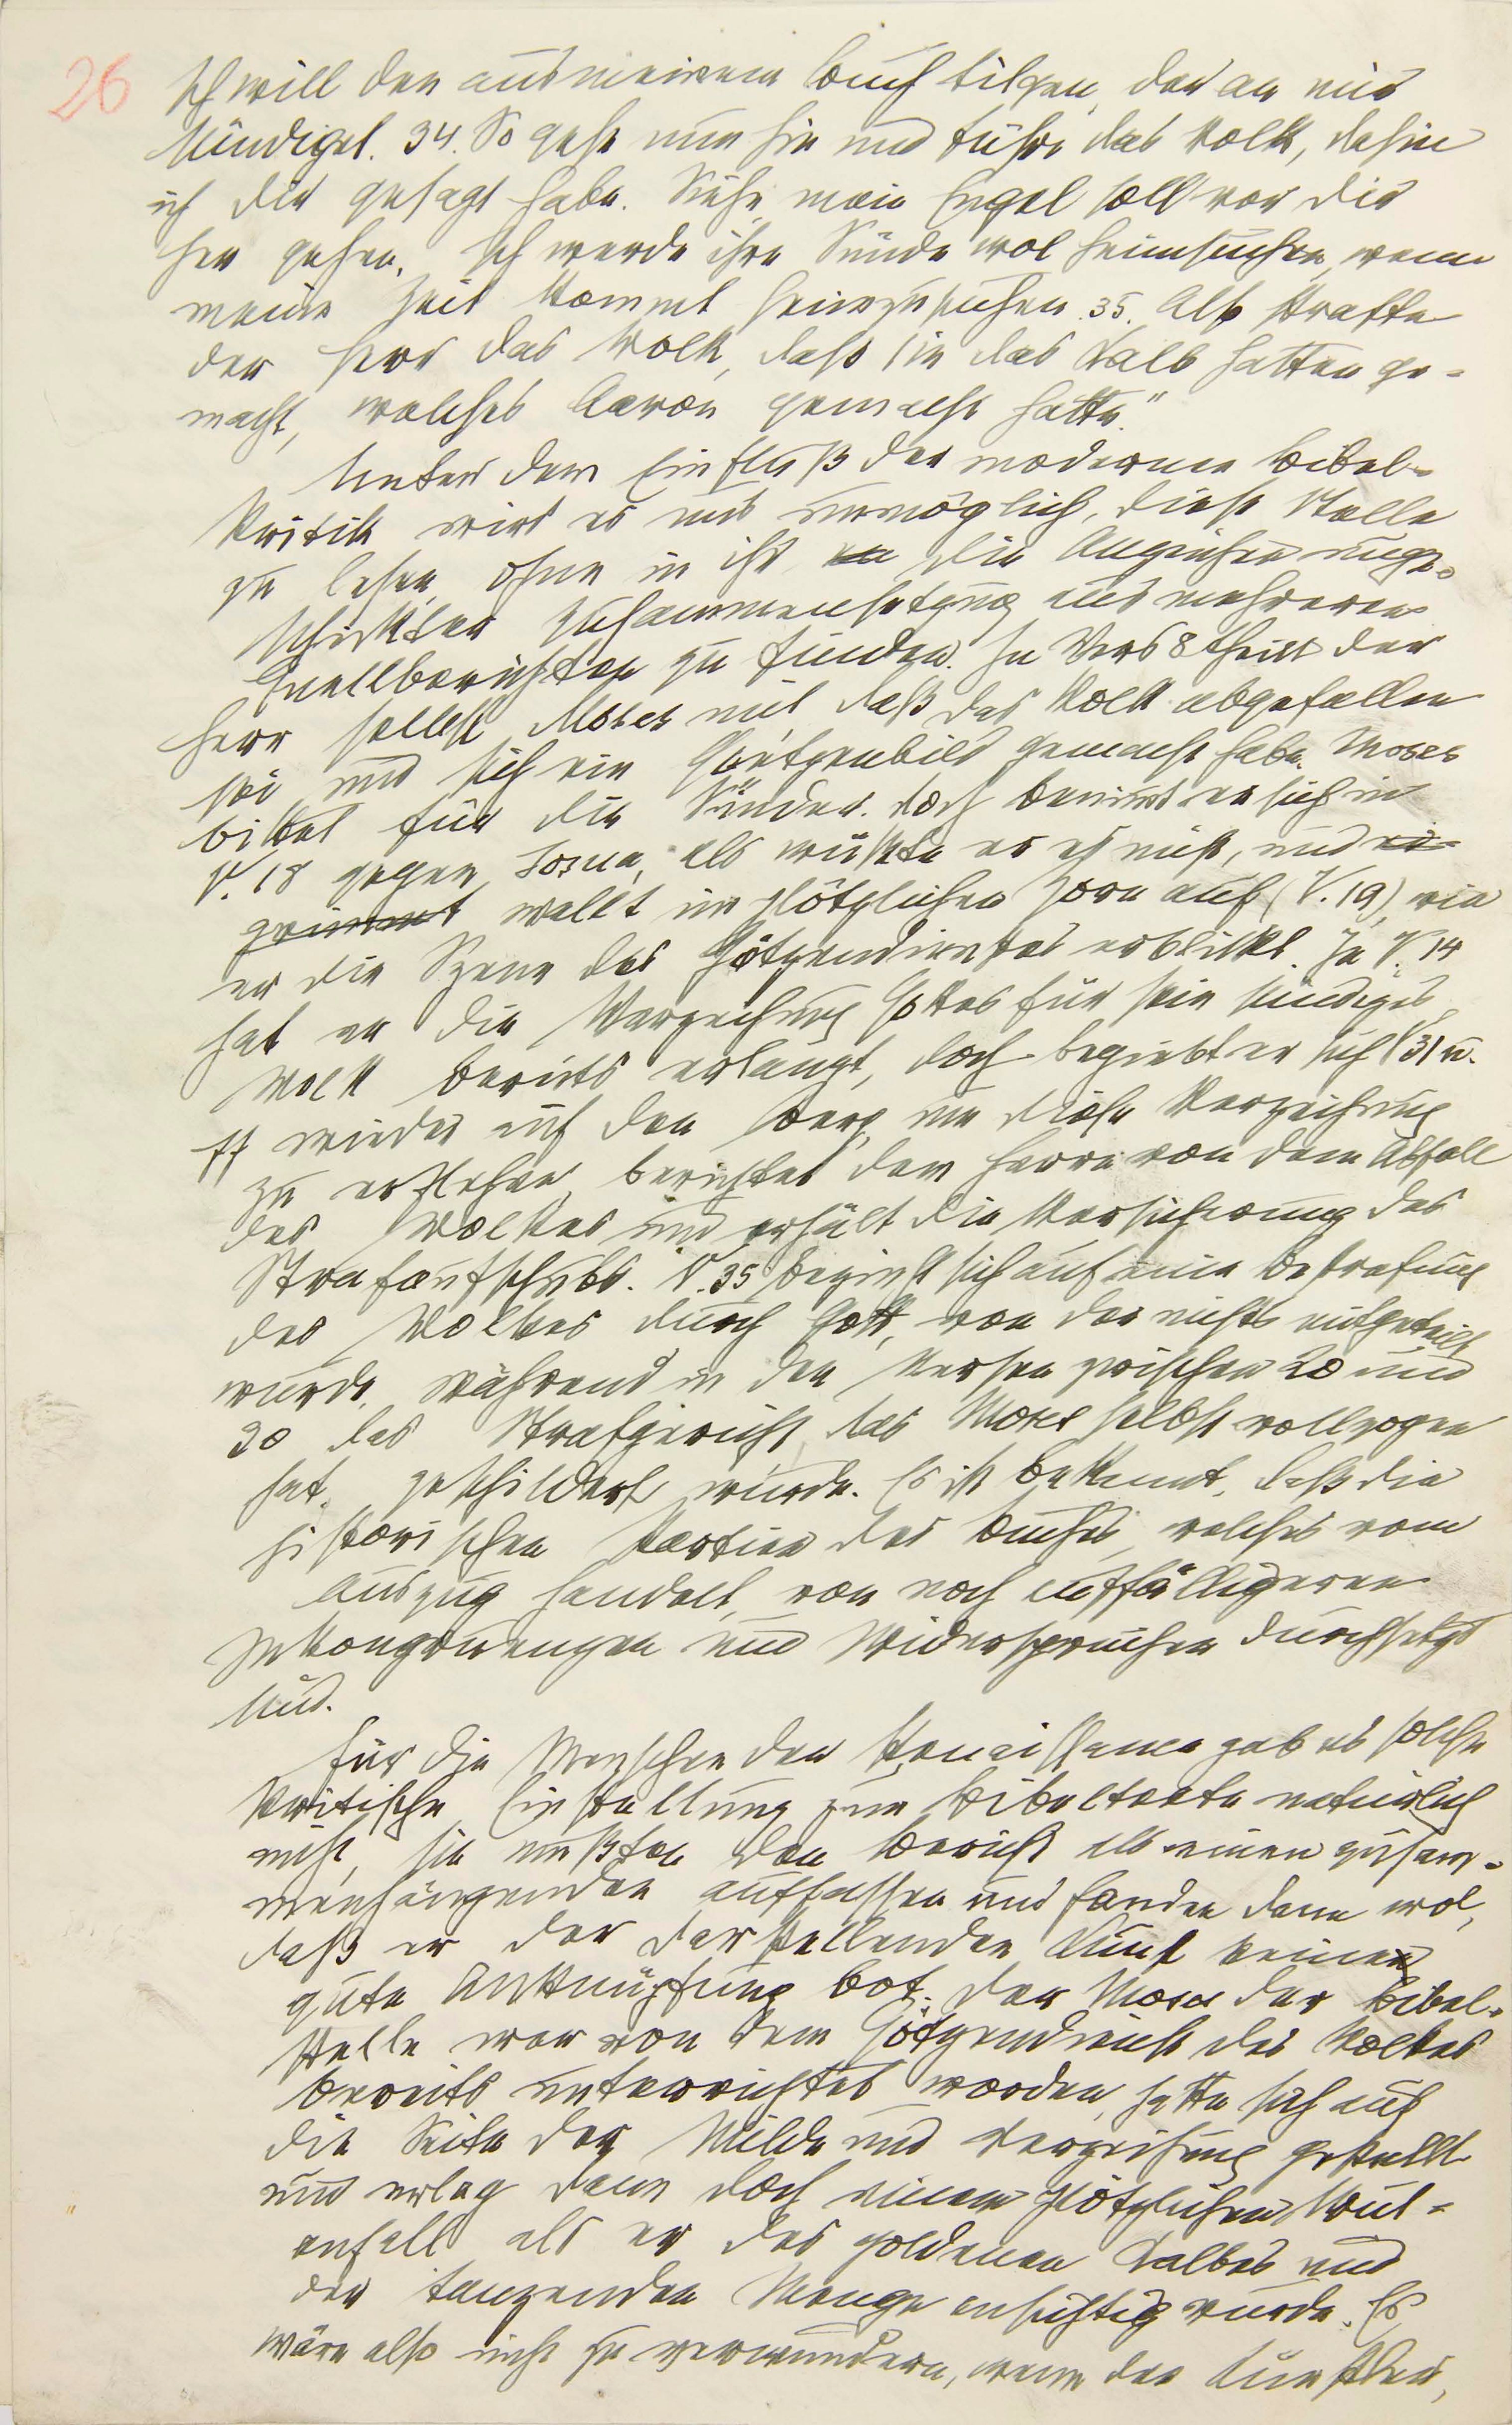 26
Ich will den aus meinem Buch tilgen, der an mir
sündiget. 34. So gehe nun hin und führe das Volk, dahin
ich dir gesagt habe. Siehe mein Engel soll vor dir
her gehen. Ich werde ihre Sünde wol heimsuchen, wenn
meine Zeit kommt heimzusuchen. 35. Also strafte
der Herr das Volk, daß sie das Kalb hatten ge-
macht, welches Aaron gemacht hatte."
Unter dem Einfluß der modernen Bibel-
kritik wird es uns unmöglich, diese Stelle
zu lesen, ohne in ihr die Anzeichen unge-
schickter Zusammensetzung aus mehreren
Quellberichten zu finden. In Vers 8 theilt der
Herr selbst Moses mit daß das Volk abgefallen
sei und sich ein Götzenbild gemacht habe. Moses
bittet für die Sünder. Doch benimmt er sich in
V. 18 gegen Josua, als wüßte er es nicht, und er-
grimmt wallt im plötzlichen Zorn auf (V. 19), wie
er die Szene des Götzendienstes erblickt. In V. 14
hat er die Verzeihung Gottes für sein sündiges
Volk bereits erlangt, doch begiebt er sich V 31 u.
ff wieder auf den Berg, um diese Verzeihung
zu erflehen, berichtet dem Herrn von dem Abfall
des Volkes und erhält die Versicherung des
Strafaufschubs. V. 35 bezieht sich auf eine Bestrafung
des Volkes durch Gott, von der nichts mitgeteilt
wurde, während in den Versen zwischen 20 und
30 das Strafgericht, das Moses selbst vollzogen
hat, geschildert wurde. Es ist bekannt, daß die
historischen Partien des Buches, welches vom
Auszug handelt, von noch auffälligeren
Inkongruenzen und Widersprüchen durchsetzt
sind.
Für die Menschen der Renaissance gab es solche
kritische Einstellung zum Bibeltexte natürlich
nicht, sie mußten den Bericht als einen zusam-
menhängenden auffassen und fanden dann wol,
daß er der darstellenden Kunst keine
gute Anknüpfung bot. Der Moses der Bibel-
stelle war von dem Götzendienst des Volkes
bereits unterrichtet worden, hatte sich auf
die Seite der Milde und Verzeihung gestellt
und erlag dann doch einem plötzlichen Wut-
anfall als er des goldenen Kalbes und
der tanzenden Menge ansichtig wurde. Es
wäre also nicht zu verwundern, wenn der Künstler,